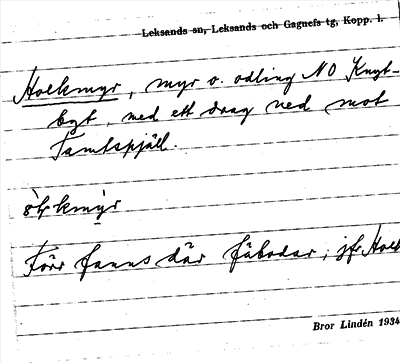 Leksands sn, Leksands och Gagnefs tg, Kopp. l.
Holkmyr, myr o. odling NO Knyt-
byt, med ett drag ned mot
Tansspjäll.
Förr fanns där fäbodar, jfr Holk
Bror Lindén 1934